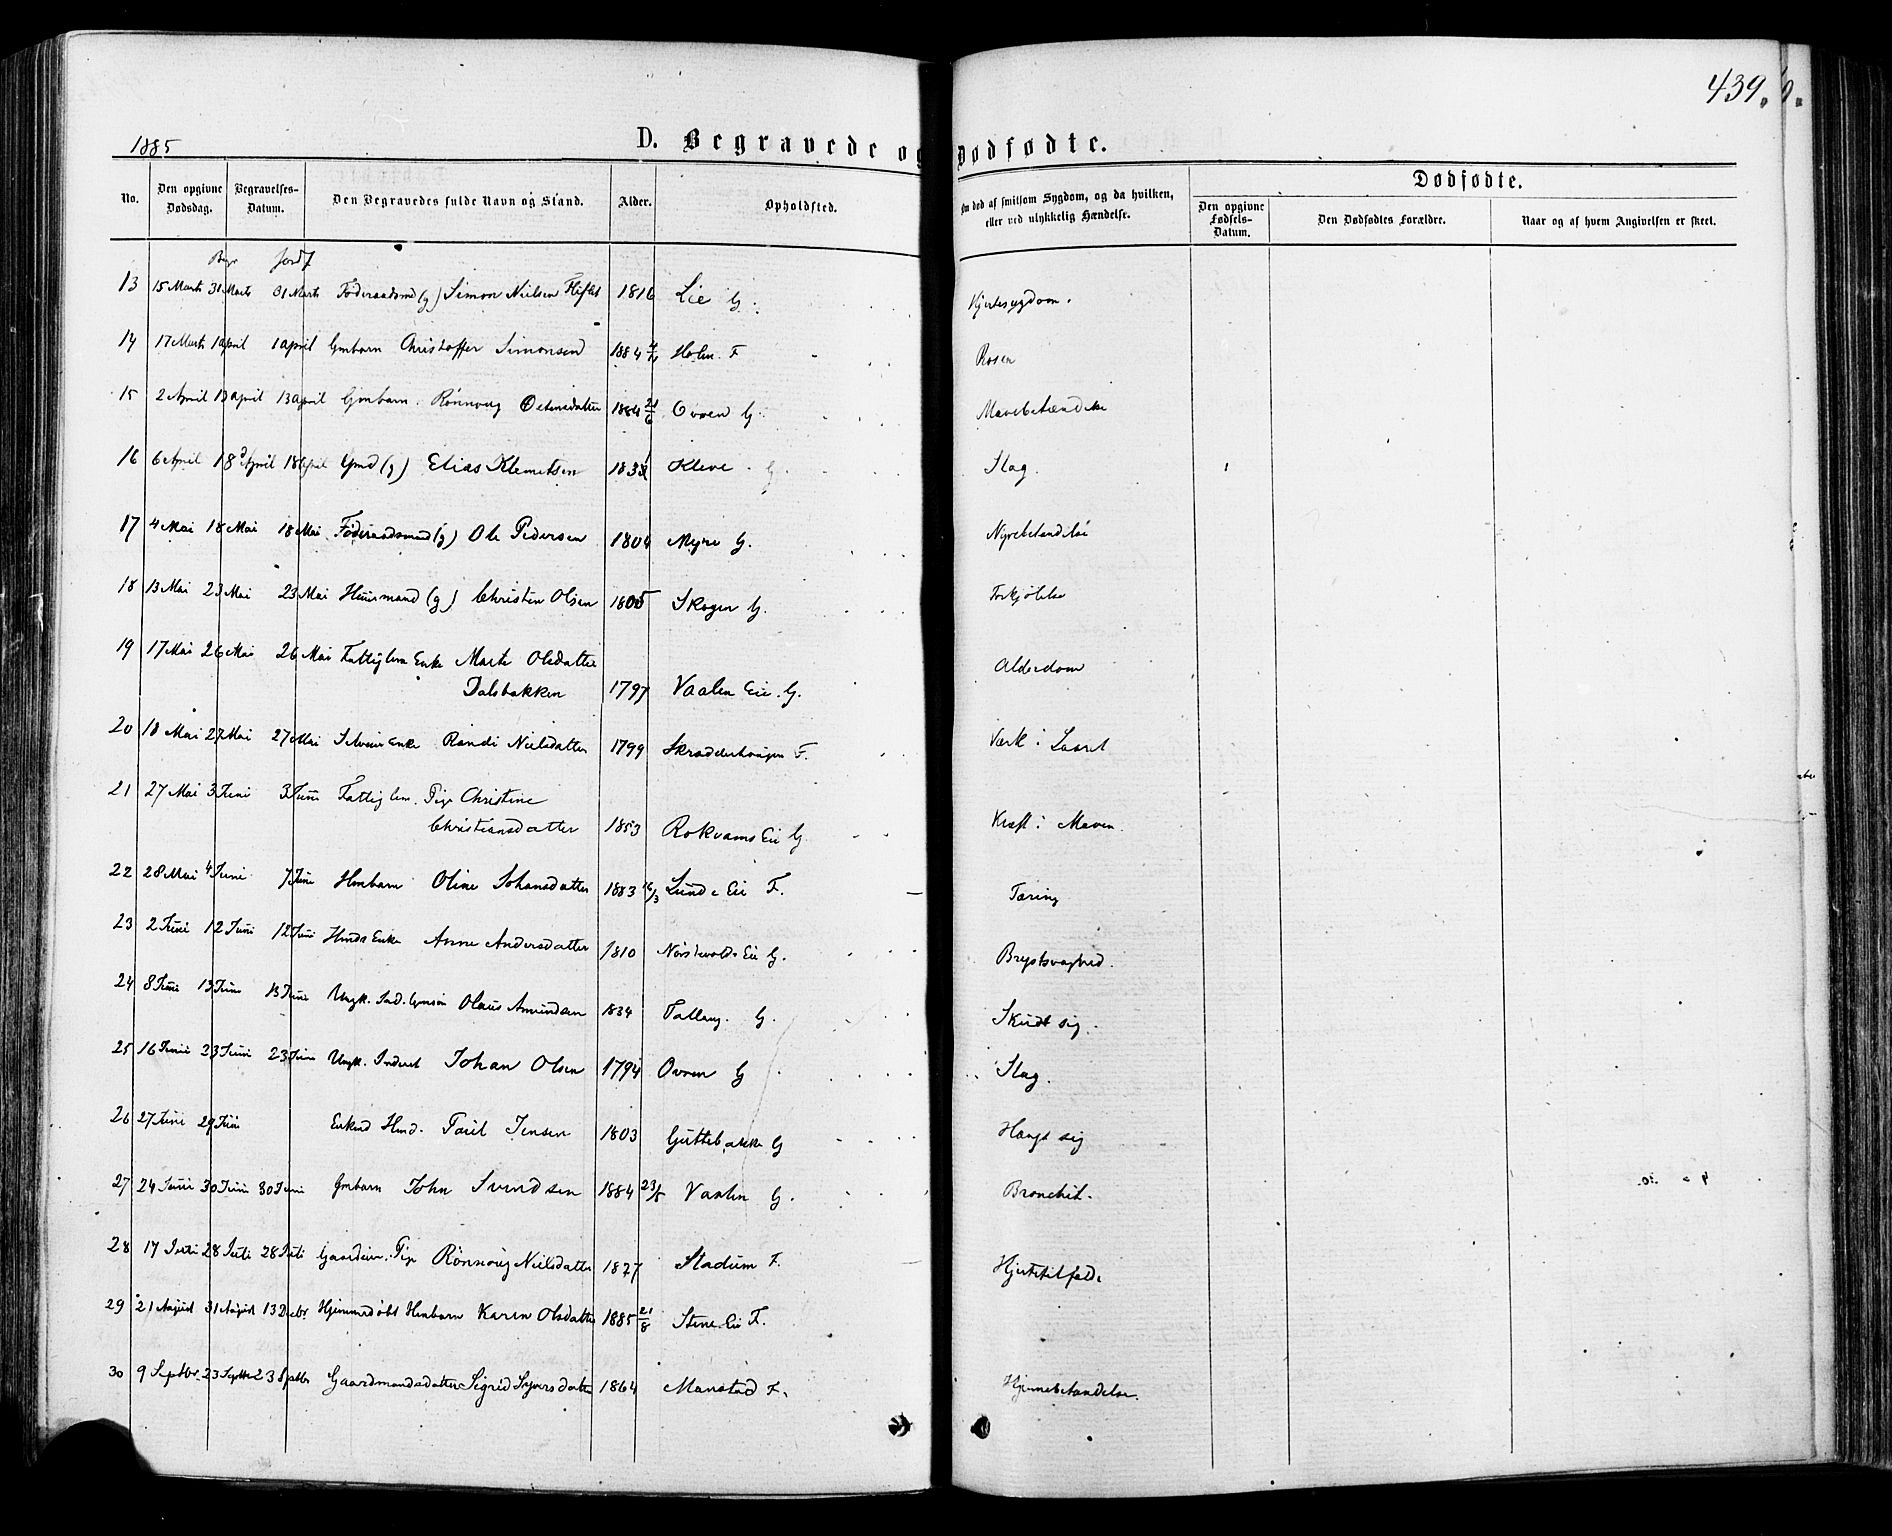 439.
1885
D. Begravede og Dødfødte.
No. Den opgivne Dødsdag. Begravelses-Datum. Den Begravedes fulde Navn og Stand. Alder. Opholdsted. Om død af smitsom Sygdom, og da hvilken, eller ved ulykkelig Hændelse. Dødfødte.
Den opgivne Fødsels-Datum. Den Dødfødtes Forældre. Naar og af hvem Angivelsen er skeet.
Begr Jordf
13 15 Marts 31 Marts 31 Marts Føderaadsmd (g) Simon Nielsen 1816 Lie G. Hjertesygdom.
14 17 Marts 1 April 1 April Gmbarn Christoffer Simonsen 1884 Holen F Rosen
15 2 April 13 April 13 April Gmbarn. Rønnoug Ostensdatter 1884 21/6 Ovren G. Mavebetændelse
16 6 April 18 April 18 April Gmd (g) Elias Klemetsen Kleve G. Slag.
17 4 Mai 18 Mai 18 Mai Føderaadsmand (g) Ole Pedersen 1804 Myre G. Nyrebetændelse
18 13 Mai 23 Mai 23 Mai Huusmand (g) Christen Olsen 1805 Skogen G. Forkjølelse
19 17 Mai 26 Mai 26 Mai Fattiglem Enke Marte Olsdatter
Dalsbakken 1797 Vaalen Eie. G. Alderdom
20 18 Mai 27 Mai 27 Mai Selveier Enke Randi Nielsdatter 1799 Skradderhaugen F. Værk i Laaret
21 27 Mai 3 Juni 3 Juni Fattiglem. Pige Christine
Christiansdatter 1853 Rokvams Eie G Kræft i Maven.
22 28 Mai 4 Juni 7 Juni Hmbarn Oline Johansdatter 1883 16/3 Lunde Eie F. Tæring
23 2 Juni 12 Juni 12 Juni Hmds Enke Anne Andersdatter 1810 Nørstevolds Eie G. Brystsvaghed.
24 8 Juni 13 Juni 13 Juni Ungk. Ind. Gmsøn Olaus Amundsen 1834 Tallaug. G. Skudt sig.
25 16 Juni 23 Juni 23 Juni Ungk. Inderst Johan Olsen 1794 Ovren G Slag.
26 27 Juni 29 Juni Enkmd Hmd. Paul Jensen 1803 Guttebakke G Hængt sig
27 24 Juni 30 Juni 30 Juni Gmbarn John Svendsen 1884 23/5 Vaalen G. Bronchit.
28 17 Juli 28 Juli 28 Juli Gaardeier. Pige Rønnoug Nielsdatter 1827 Stadum F. Hjertetilfælde
29 21 August 31 August 13 Decbr. Hjemmedøbt Hmbarn Karen Olsdatter 1885 21/8 Stene Eie F.
30 9 Septbr. 23 Septbr 23 Septbr Gaardmandsdatter Sigrid Syversdatter 1864 Manstad F. Hjernebetændelse.